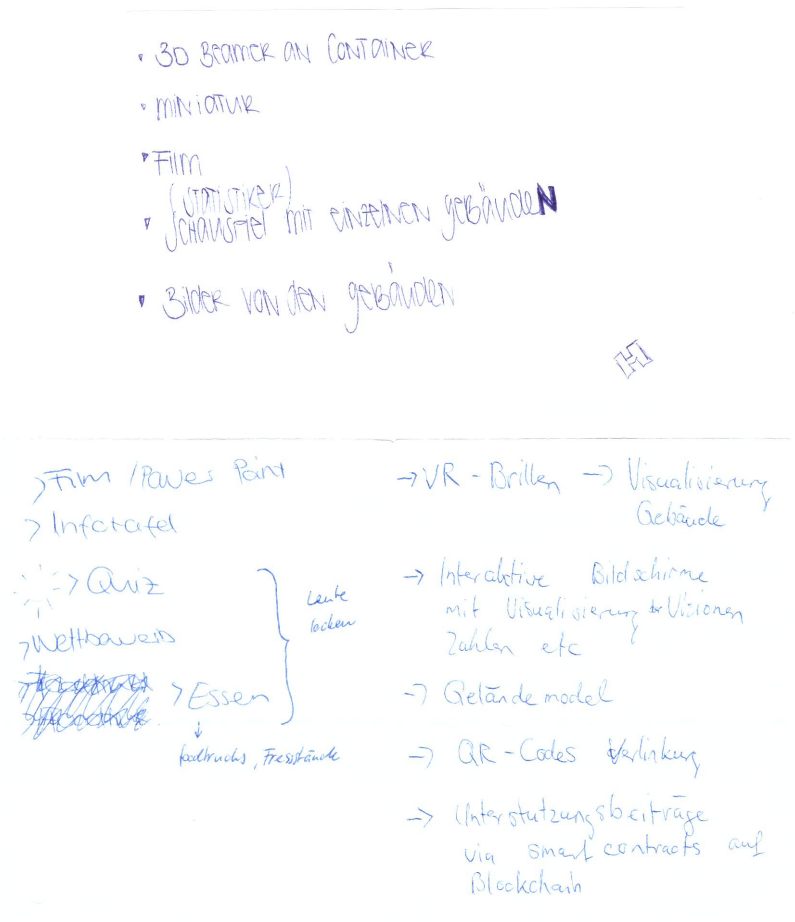 • 3D Beamer an Container
• miniatur
• Film
(Statistiker)
• Schauspiel mit einzelnen gebäuden
• Bilder von den gebäuden
H
> Film / Power Point
> Infotafel
> Quiz
> Wettbewerb
> Essen
Leute
locken
↓
foodtrucks, Fressstände
→ VR - Brillen → Visualisierung
Gebäude
→ Interaktive Bildschirme
mit Visualisierung der Visionen
Zahlen etc
→ Geländemodel
→ QR - Codes Verlinkung
→ Unterstutzungsbeiträge
via smart contracts auf
Blockchain